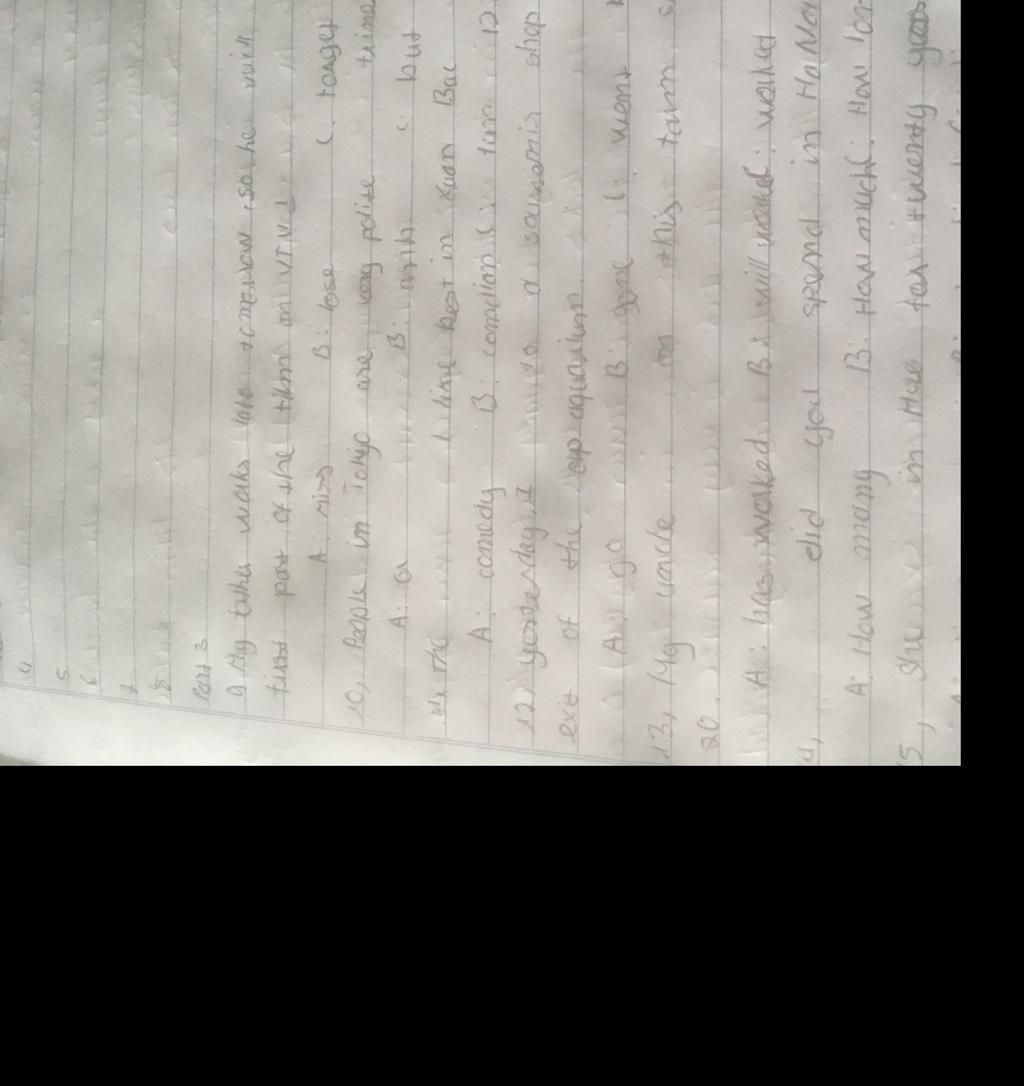 4
5
6
7
8
Part 3
9, My father works late tomorrow, so he will
first part of the film on VTV1
A: miss B: lose C. forget
10, People in Tokyo are very polite
A: a B: with C: but
11, the I like best in Xuan Bac
A: comedy B: comedian C:
12, yesterday, I to a souvenir shop
exit of the aquarium.
A: go B: gone C: went
13, My uncle on this farm
20.
A: has worked B: will worked
4, did you spend in HaNoi
A: How many B: How much C: How
15, She in Hue for twenty years